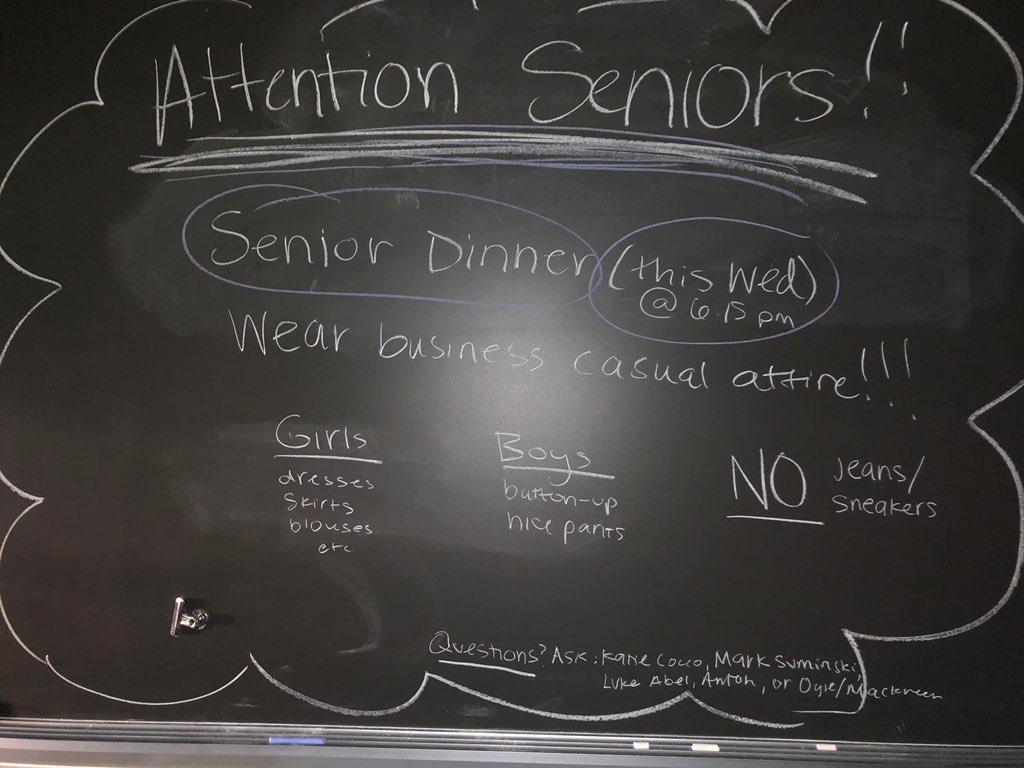 Attention Seniors!!
Senior Dinner (this Wed)
@ 6:15 pm
Wear business casual attire!!!
Girls
dresses
skirts
blouses
etc
Boys
button-up
nice pants
NO Jeans/
sneakers
Questions? Ask: Kane Cocco, Mark Suminski
Luke Abel, Anton, or